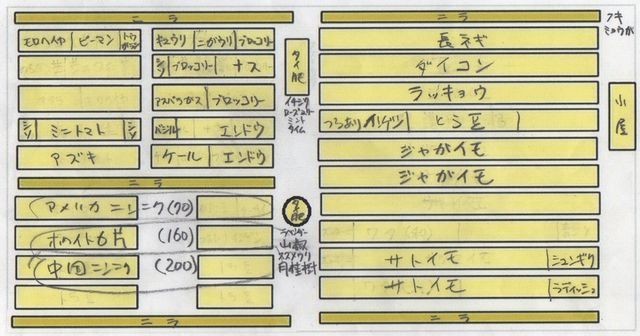 ニラ
モロヘイヤ ピーマン トウガラシ
キュウリ ニガウリ ブロッコリー
シソ ブロッコリー ナス
アスパラガス ブロッコリー
シソ ミニトマト シソ
バジル エンドウ
アズキ
ケール エンドウ
ニラ
アメリカニンニク(70)
ホワイト6片 (160)
中国ニンニク (200)
ニラ
タイ肥
イチジク
ローズマリー
ミント
タイム
タイ肥
ラベンダー
山椒
スズメウリ
月桂樹
ニラ
長ネギ
ダイコン
ラッキョウ
つるあり インゲン とら豆
ジャガイモ
ジャガイモ
サトイモ シュンギク
サトイモ ラディッシュ
ニラ
フキ
ミョウガ
小屋